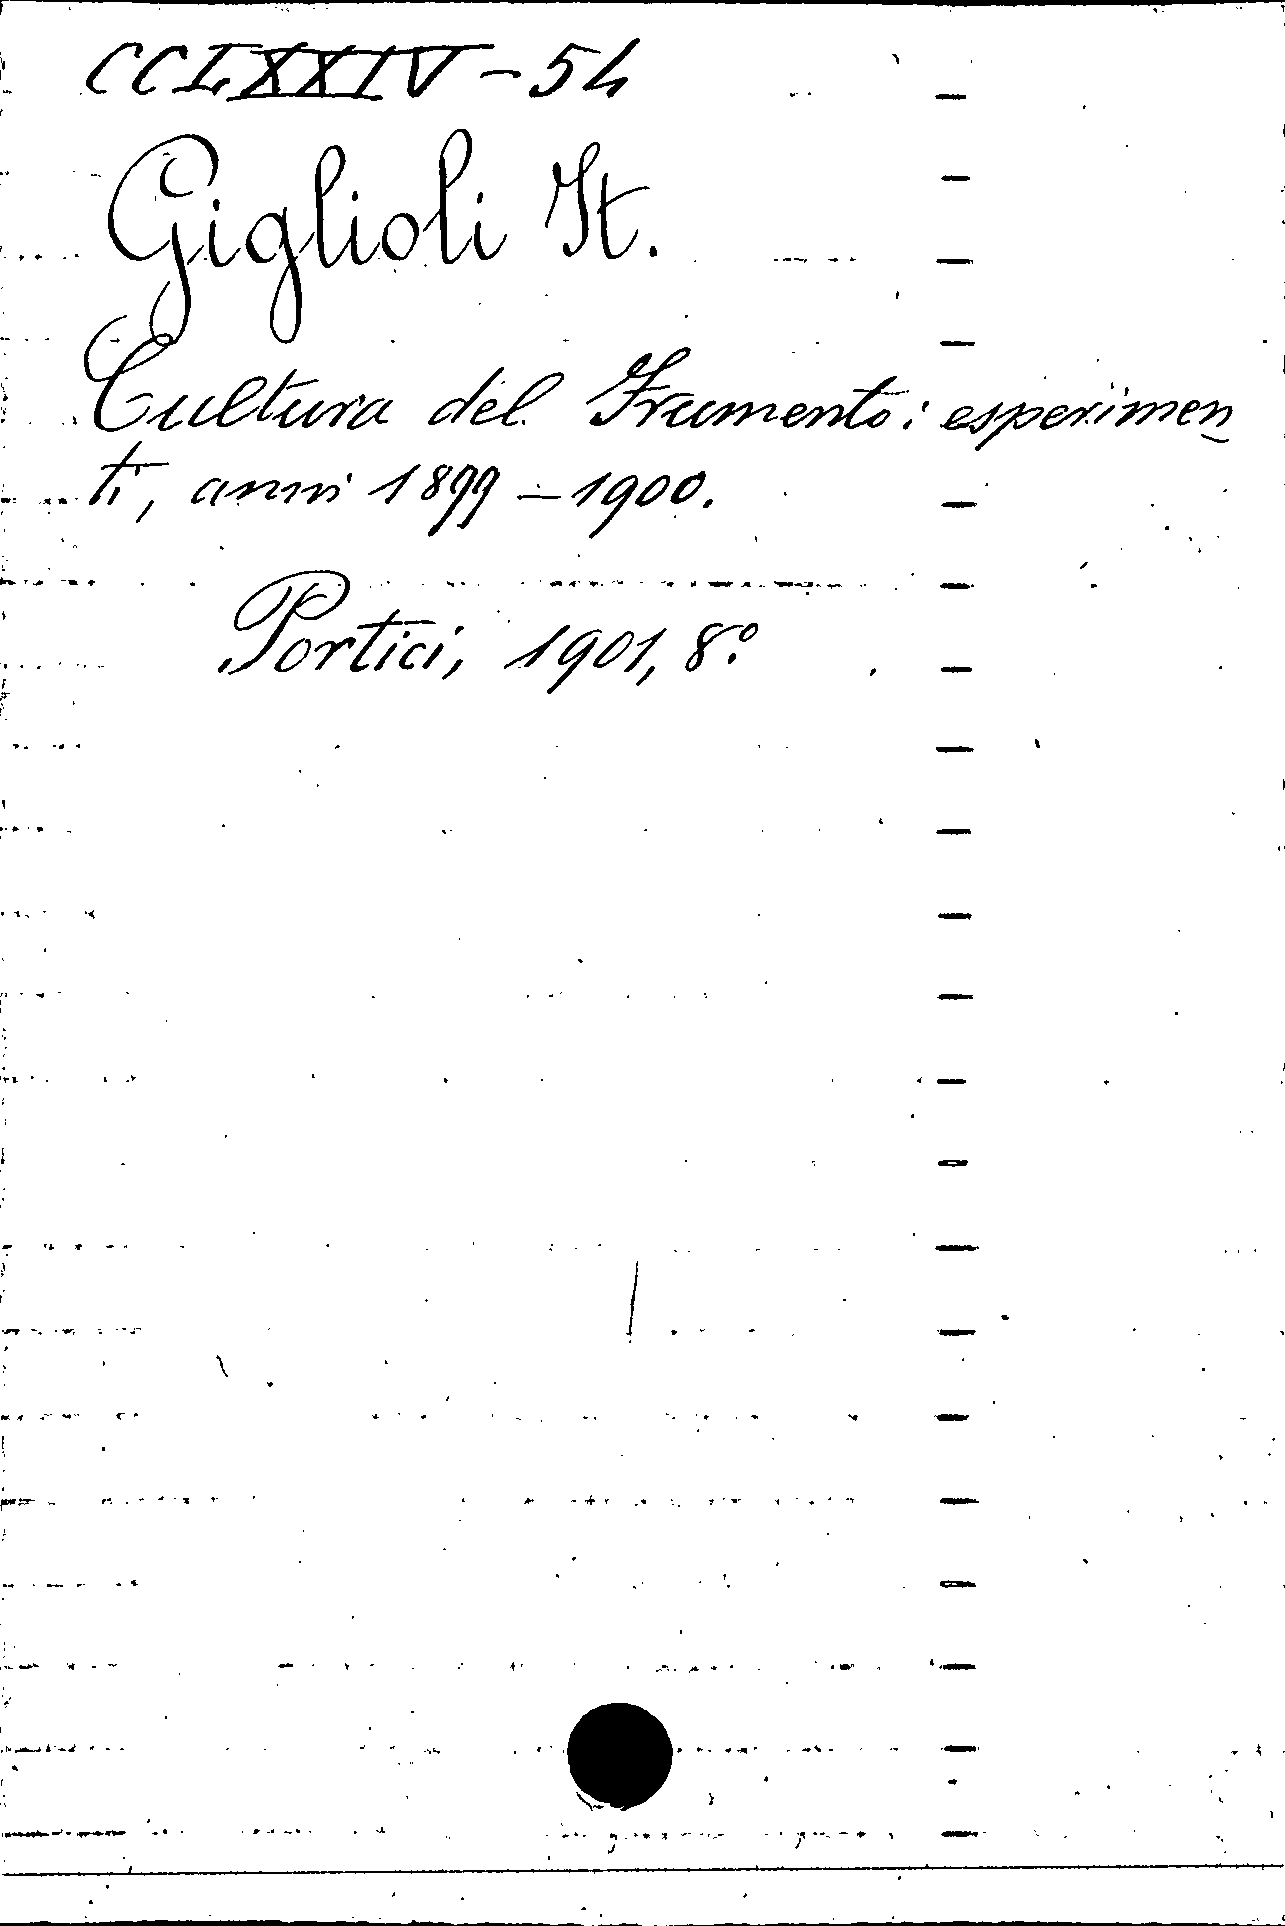 CCLXXIV - 54
Giglioli It.
Cultura del Frumento: esperimen
ti, anni 1899 - 1900.
Portici, 1901, 8.º